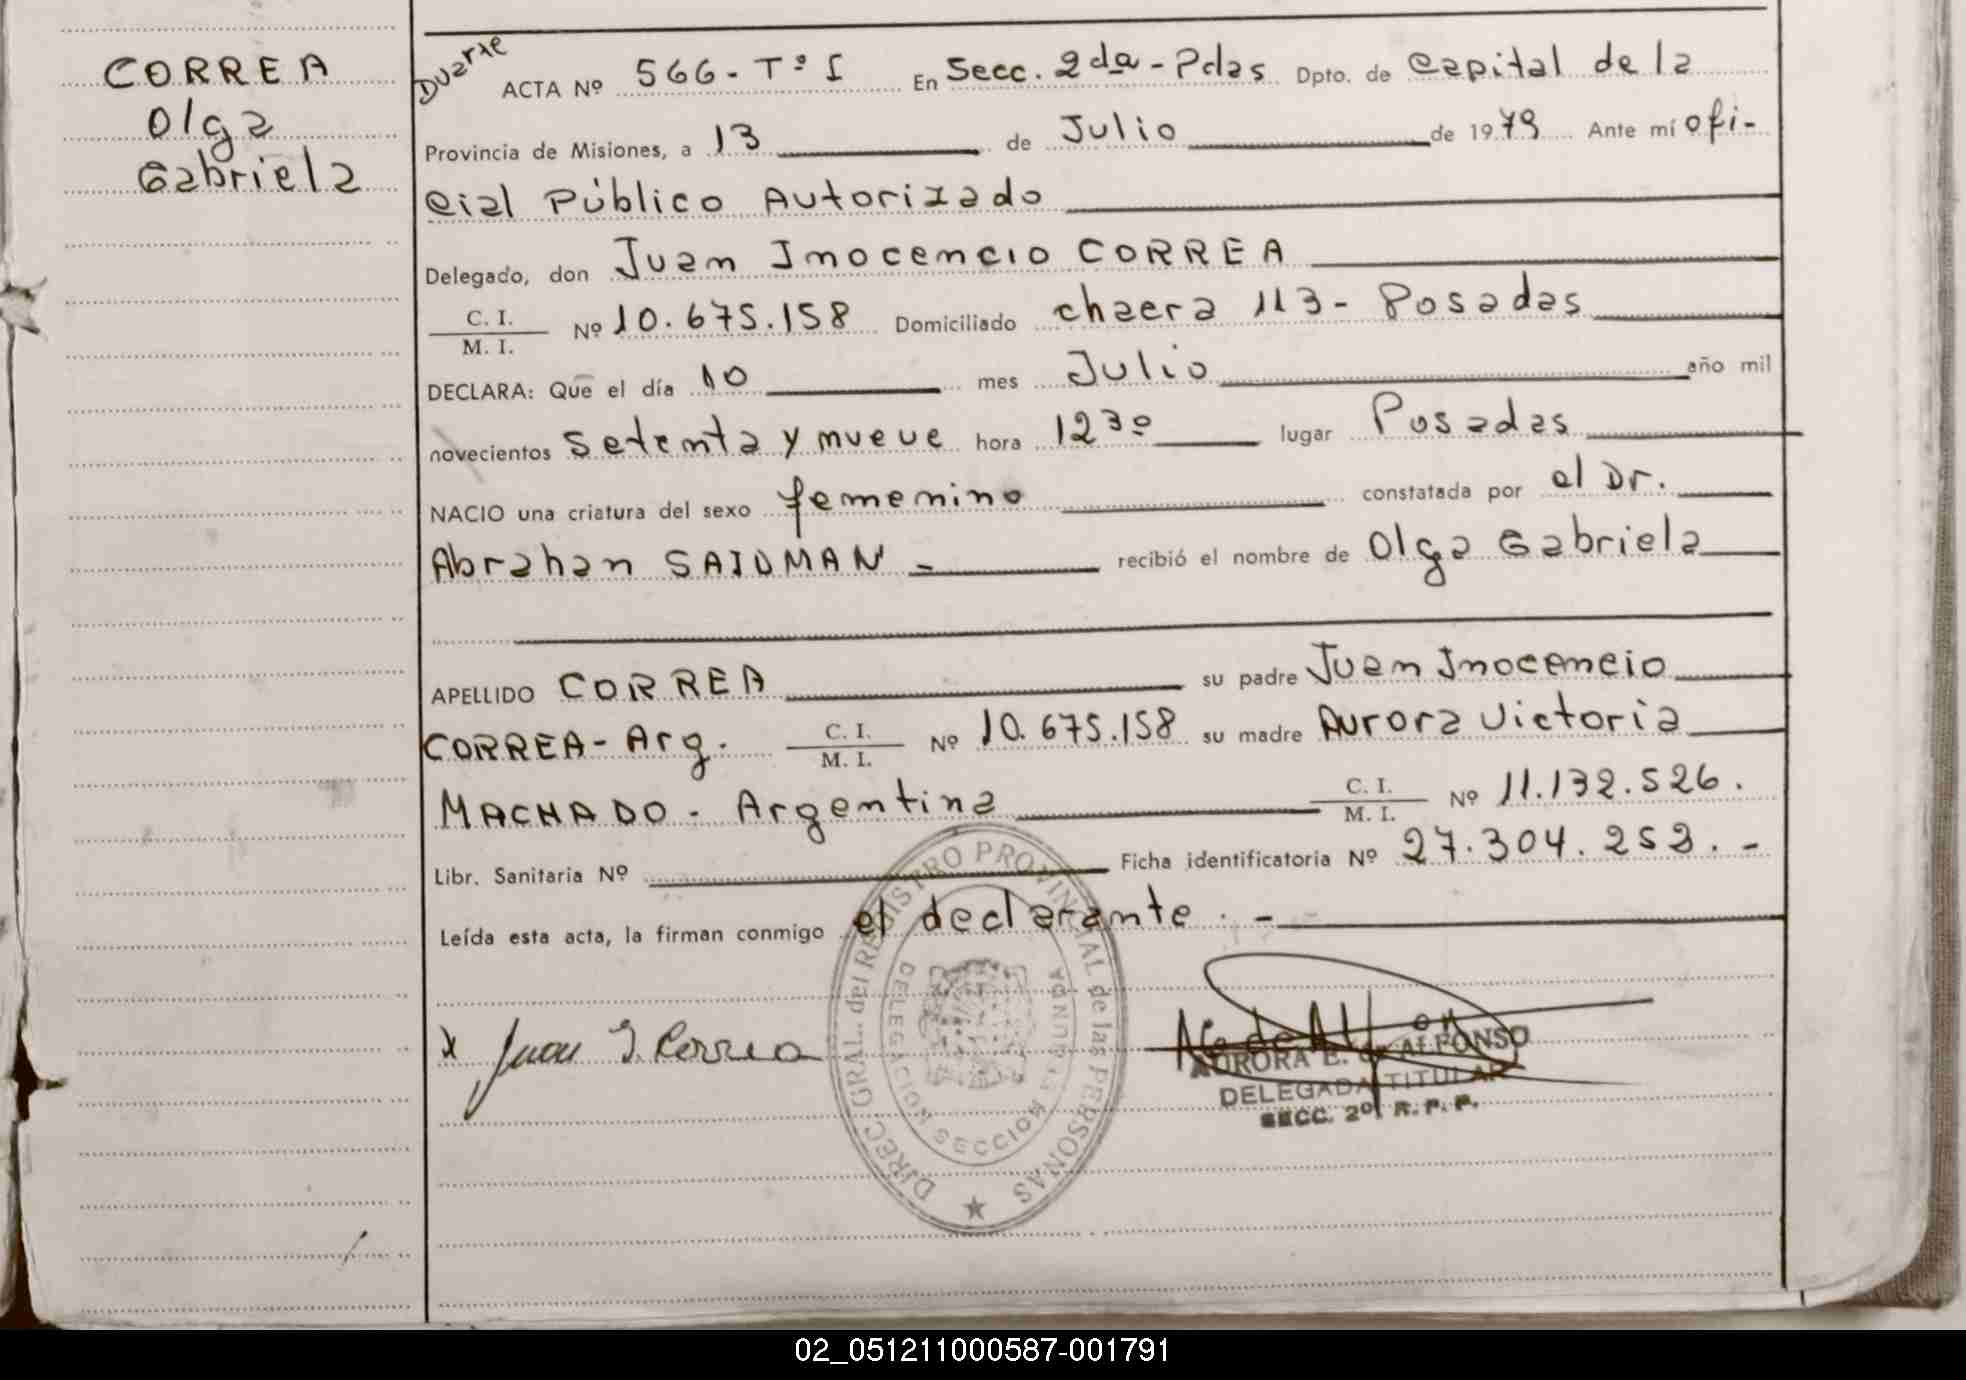 CORREA
Olga
Gabriela
Duarte
ACTA Nº 566-Tº I En Secc. 2da-Pdas Dpto. de Capital de la
Provincia de Misiones, a 13 de Julio de 1979 Ante mí ofi-
cial Público Autorizado
Delegado, don Juan Inocencio CORREA
C. I.
M. I. Nº 10.675.158 Domiciliado chacra 113- Posadas
DECLARA: Que el día 10 mes Julio año mil
novecientos setenta y nueve hora 12³⁰ lugar Posadas
NACIO una criatura del sexo femenino constatada por el Dr.
Abrahan SAIDMAN - recibió el nombre de Olga Gabriela
APELLIDO CORREA su padre Juan Inocencio
CORREA-Arg. C. I. M. I. Nº 10.675.158 su madre Aurora Victoria
MACHADO - Argentina C. I. M. I. Nº 11.132.526.
Libr. Sanitaria Nº Ficha identificatoria Nº 27.304.253.-
Leída esta acta, la firman conmigo el declarante.-
x Juan I. Correa
AURORA E. de ALFONSO
DELEGADA TITULAR
SECC. 2º R. P. P.
DIREC. GRAL. del REGISTRO PROVINCIAL de las PERSONAS
DELEGACION SECCION SEGUNDA
02_051211000587-001791